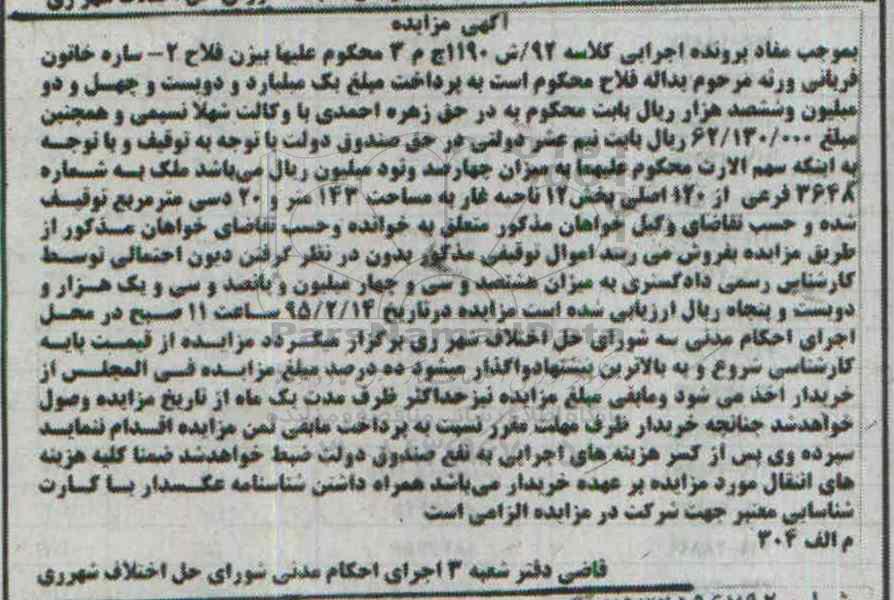 آگهی مزایده
بموجب مفاد پرونده اجرایی کلاسه ۹۲/ش ۱۱۹۰ج م ۳ محکوم علیها بیژن فلاح ۲- ساره خاتون
قربانی ورثه مرحوم یداله فلاح محکوم است به پرداخت مبلغ یک میلیارد و دویست و چهل و دو
میلیون وششصد هزار ریال بابت محکوم به در حق زهره احمدی با وکالت شهلا نسیمی و همچنین
مبلغ ۶۲/۱۳۰/۰۰۰ ریال بابت نیم عشر دولتی در حق صندوق دولت با توجه به توقیف و با توجه
به اینکه سهم الارث محکوم علیهما به میزان چهارصد ونود میلیون ریال می‌باشد ملک به شماره
۳۶۴۸ فرعی از ۱۲۰ اصلی بخش۱۲ ناحیه غار به مساحت ۱۴۳ متر و ۲۰ دسی مترمربع توقیف
شده و حسب تقاضای وکیل خواهان مذکور متعلق به خوانده وحسب تقاضای خواهان مذکور از
طریق مزایده بفروش می رسد اموال توقیفی مذکور بدون در نظر گرفتن دیون احتمالی توسط
کارشناس رسمی دادگستری به میزان هشتصد و سی و چهار میلیون و پانصد و سی و یک هزار و
دویست و پنجاه ریال ارزیابی شده است مزایده درتاریخ ۹۵/۲/۱۴ ساعت ۱۱ صبح در محل
اجرای احکام مدنی سه شورای حل اختلاف شهر ری برگزار میگردد مزایده از قیمت پایه
کارشناسی شروع و به بالاترین پیشنهادواگذار میشود ده درصد مبلغ مزایده فی المجلس از
خریدار اخذ می شود ومابقی مبلغ مزایده نیزحداکثر ظرف مدت یک ماه از تاریخ مزایده وصول
خواهدشد چنانچه خریدار ظرف مهلت مقرر نسبت به پرداخت مابقی ثمن مزایده اقدام ننماید
سپرده وی پس از کسر هزینه های اجرایی به نفع صندوق دولت ضبط خواهدشد ضمنا کلیه هزینه
های انتقال مورد مزایده بر عهده خریدار می‌باشد همراه داشتن شناسنامه عکسدار یا کارت
شناسایی معتبر جهت شرکت در مزایده الزامی است
م الف ۳۰۴
قاضی دفتر شعبه ۳ اجرای احکام مدنی شورای حل اختلاف شهرری
ParsNamadData